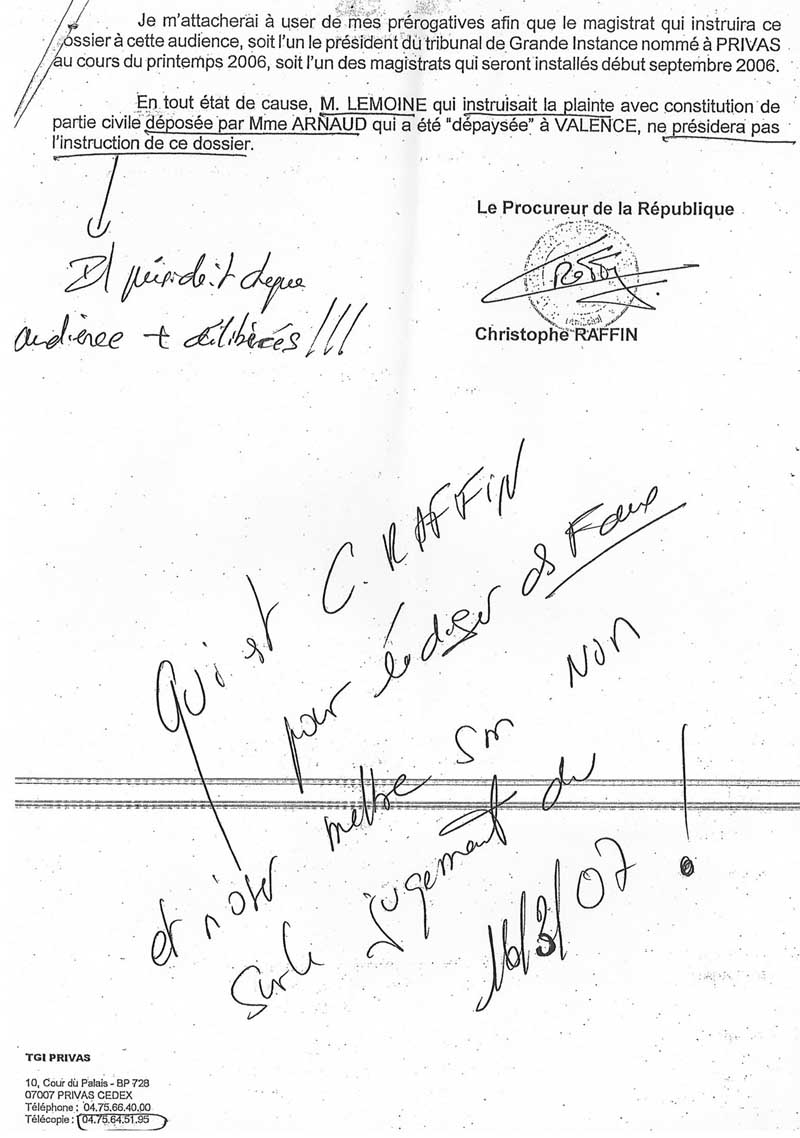 Je m'attacherai à user de mes prérogatives afin que le magistrat qui instruira ce
dossier à cette audience, soit l'un le président du tribunal de Grande Instance nommé à PRIVAS
au cours du printemps 2006, soit l'un des magistrats qui seront installés début septembre 2006.
En tout état de cause, M. LEMOINE qui instruisait la plainte avec constitution de
partie civile déposée par Mme ARNAUD qui a été "dépaysée" à VALENCE, ne présidera pas
l'instruction de ce dossier.
Le Procureur de la République
Il présidait chaque
audience + délibérés !!!
Christophe RAFFIN
Qui est C. RAFFIN
pour rédiger des Faux
et n'oser mettre son NOM
sur le jugement du
16/3/07 !
TGI PRIVAS
10, Cour du Palais - BP 728
07007 PRIVAS CEDEX
Téléphone : 04.75.66.40.00
Télécopie : 04.75.64.51.95